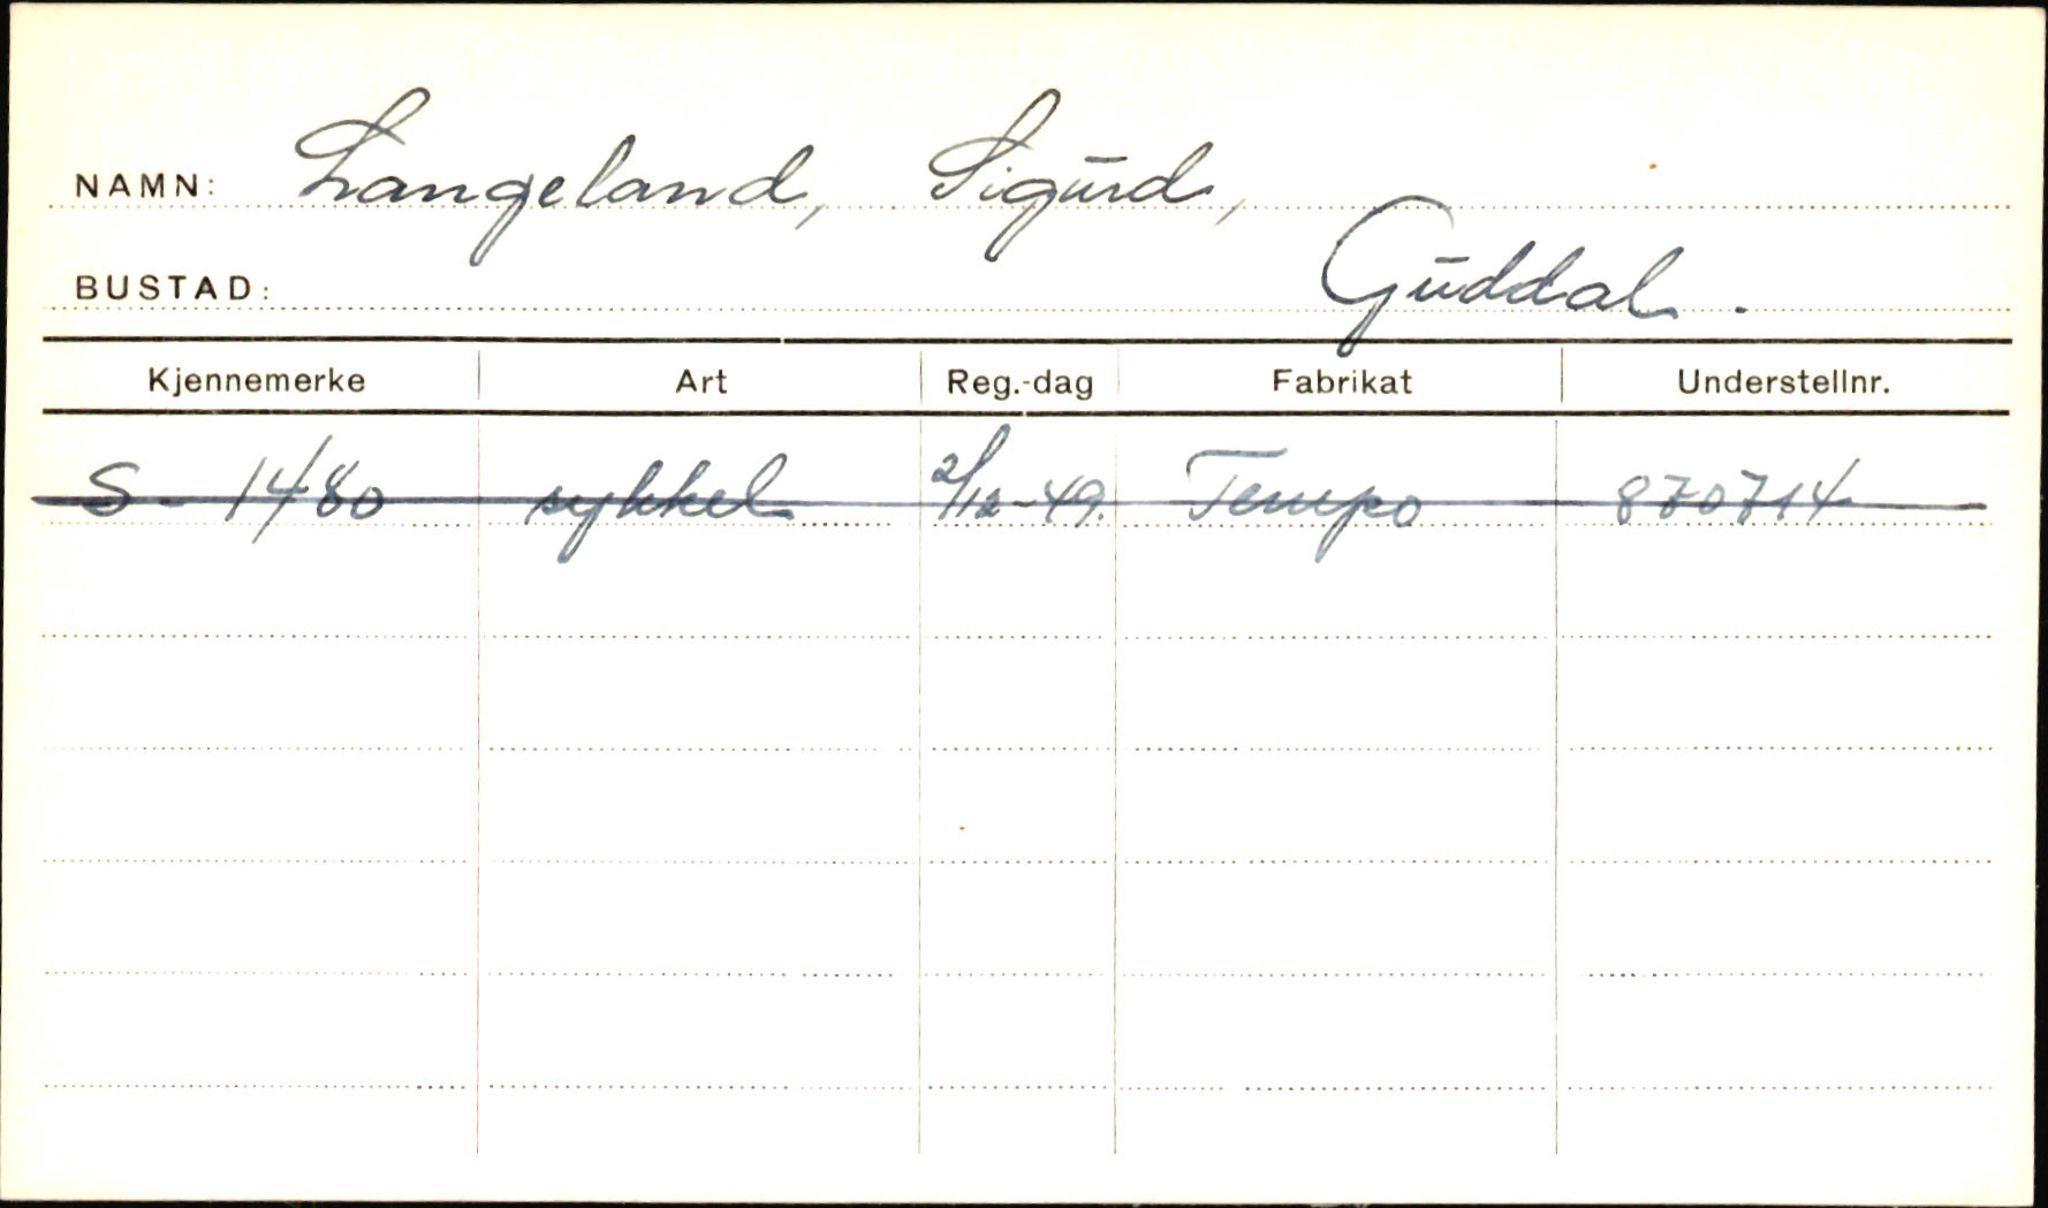 NAMN: Langeland, Sigurd,
BUSTAD: Guddal.
Kjennemerke Art Reg.-dag Fabrikat Understellnr.
S-1480 sykkel 2/12-49. Tempo 870714